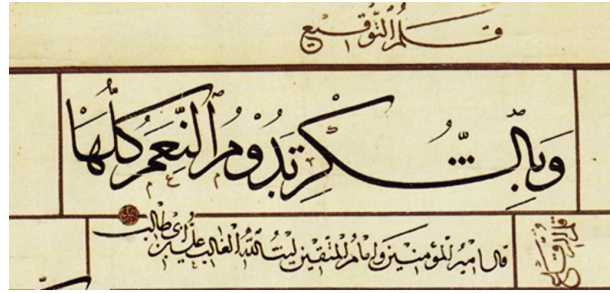 قلم التوقيع
وَبِالشُّكْرِ تَدُوْمُ النِّعَمُ كُلُّهَا
قال امير المؤمنين وامام المتقين ليث الله الغالب علي بن ابى طالب
قلم الرقاع